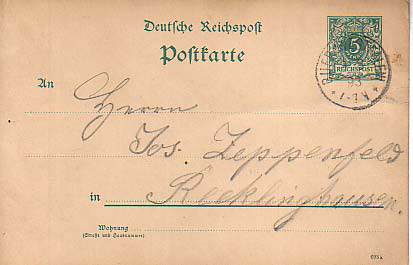 Deutsche Reichspost
Postkarte
5
REICHSPOST
An
Herrn
Jos. Zeppenfeld
in Recklinghausen.
Wohnung
(Straße und Hausnummer)